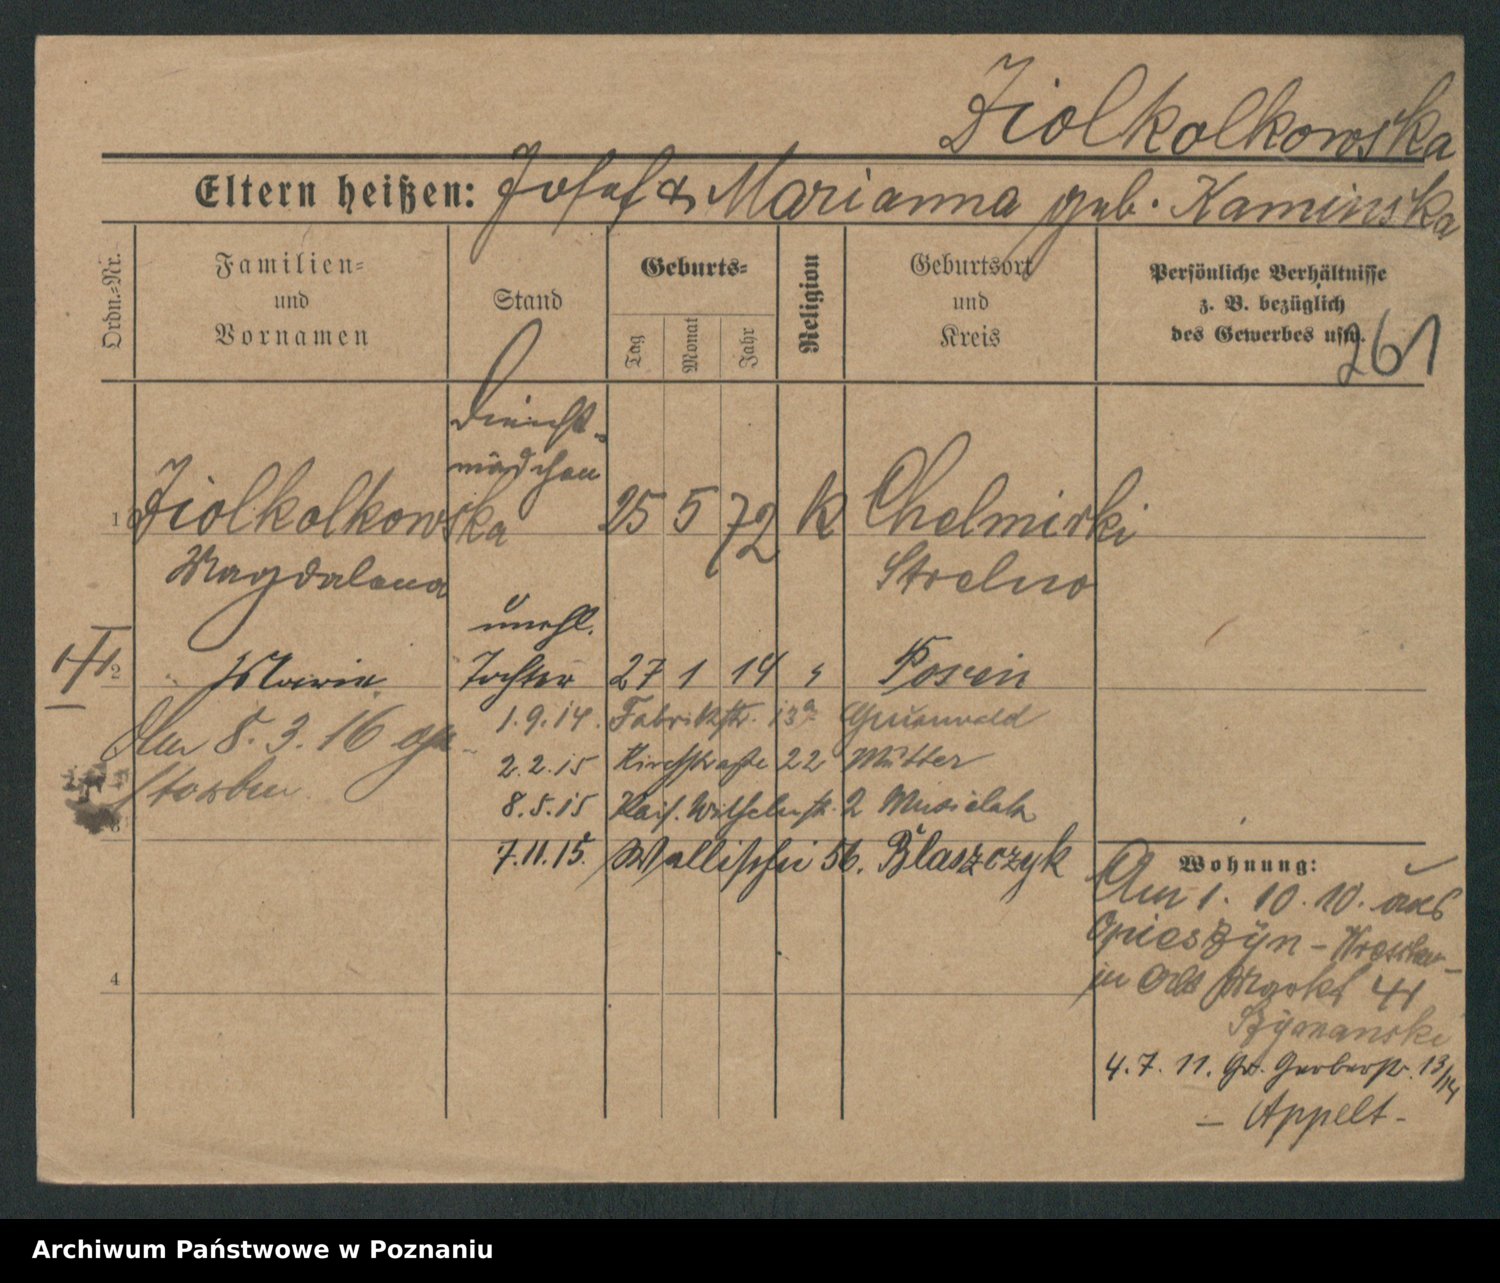 Ziolkolkowska
Eltern heißen: Josef & Marianna geb. Kaminska
Ordn.-Nr.
Familien-
und
Vornamen
Stand
Geburts-
Tag
Monat
Jahr
Religion
Geburtsort
und
Kreis
Persönliche Verhältnisse
z. B. bezüglich
des Gewerbes usw.
261
Dienst-
mädchen
1 Ziolkolkowska 25 5 72 K Chelmicki
Magdalena Strelno
unehl.
2 Marie Tochter 27 1 14 " Posen
1.9.14. Fabrikstr. 13a Grunwald
Am 8.3.16 ge-
storben
2.2.15 Kirchstraße 22 Mutter
3
8.5.15 Kais. Wilhelmstr. 2 Musielak
7.11.15. Wallischei 56. Blaszczyk
Wohnung:
Am 1. 10. 10. aus
Opieszyn - Wreschen
in Alt Markt 41
Szymanski
4
4. 7. 11. Gr. Gerberstr. 13/14
- Appelt -
Archiwum Państwowe w Poznaniu